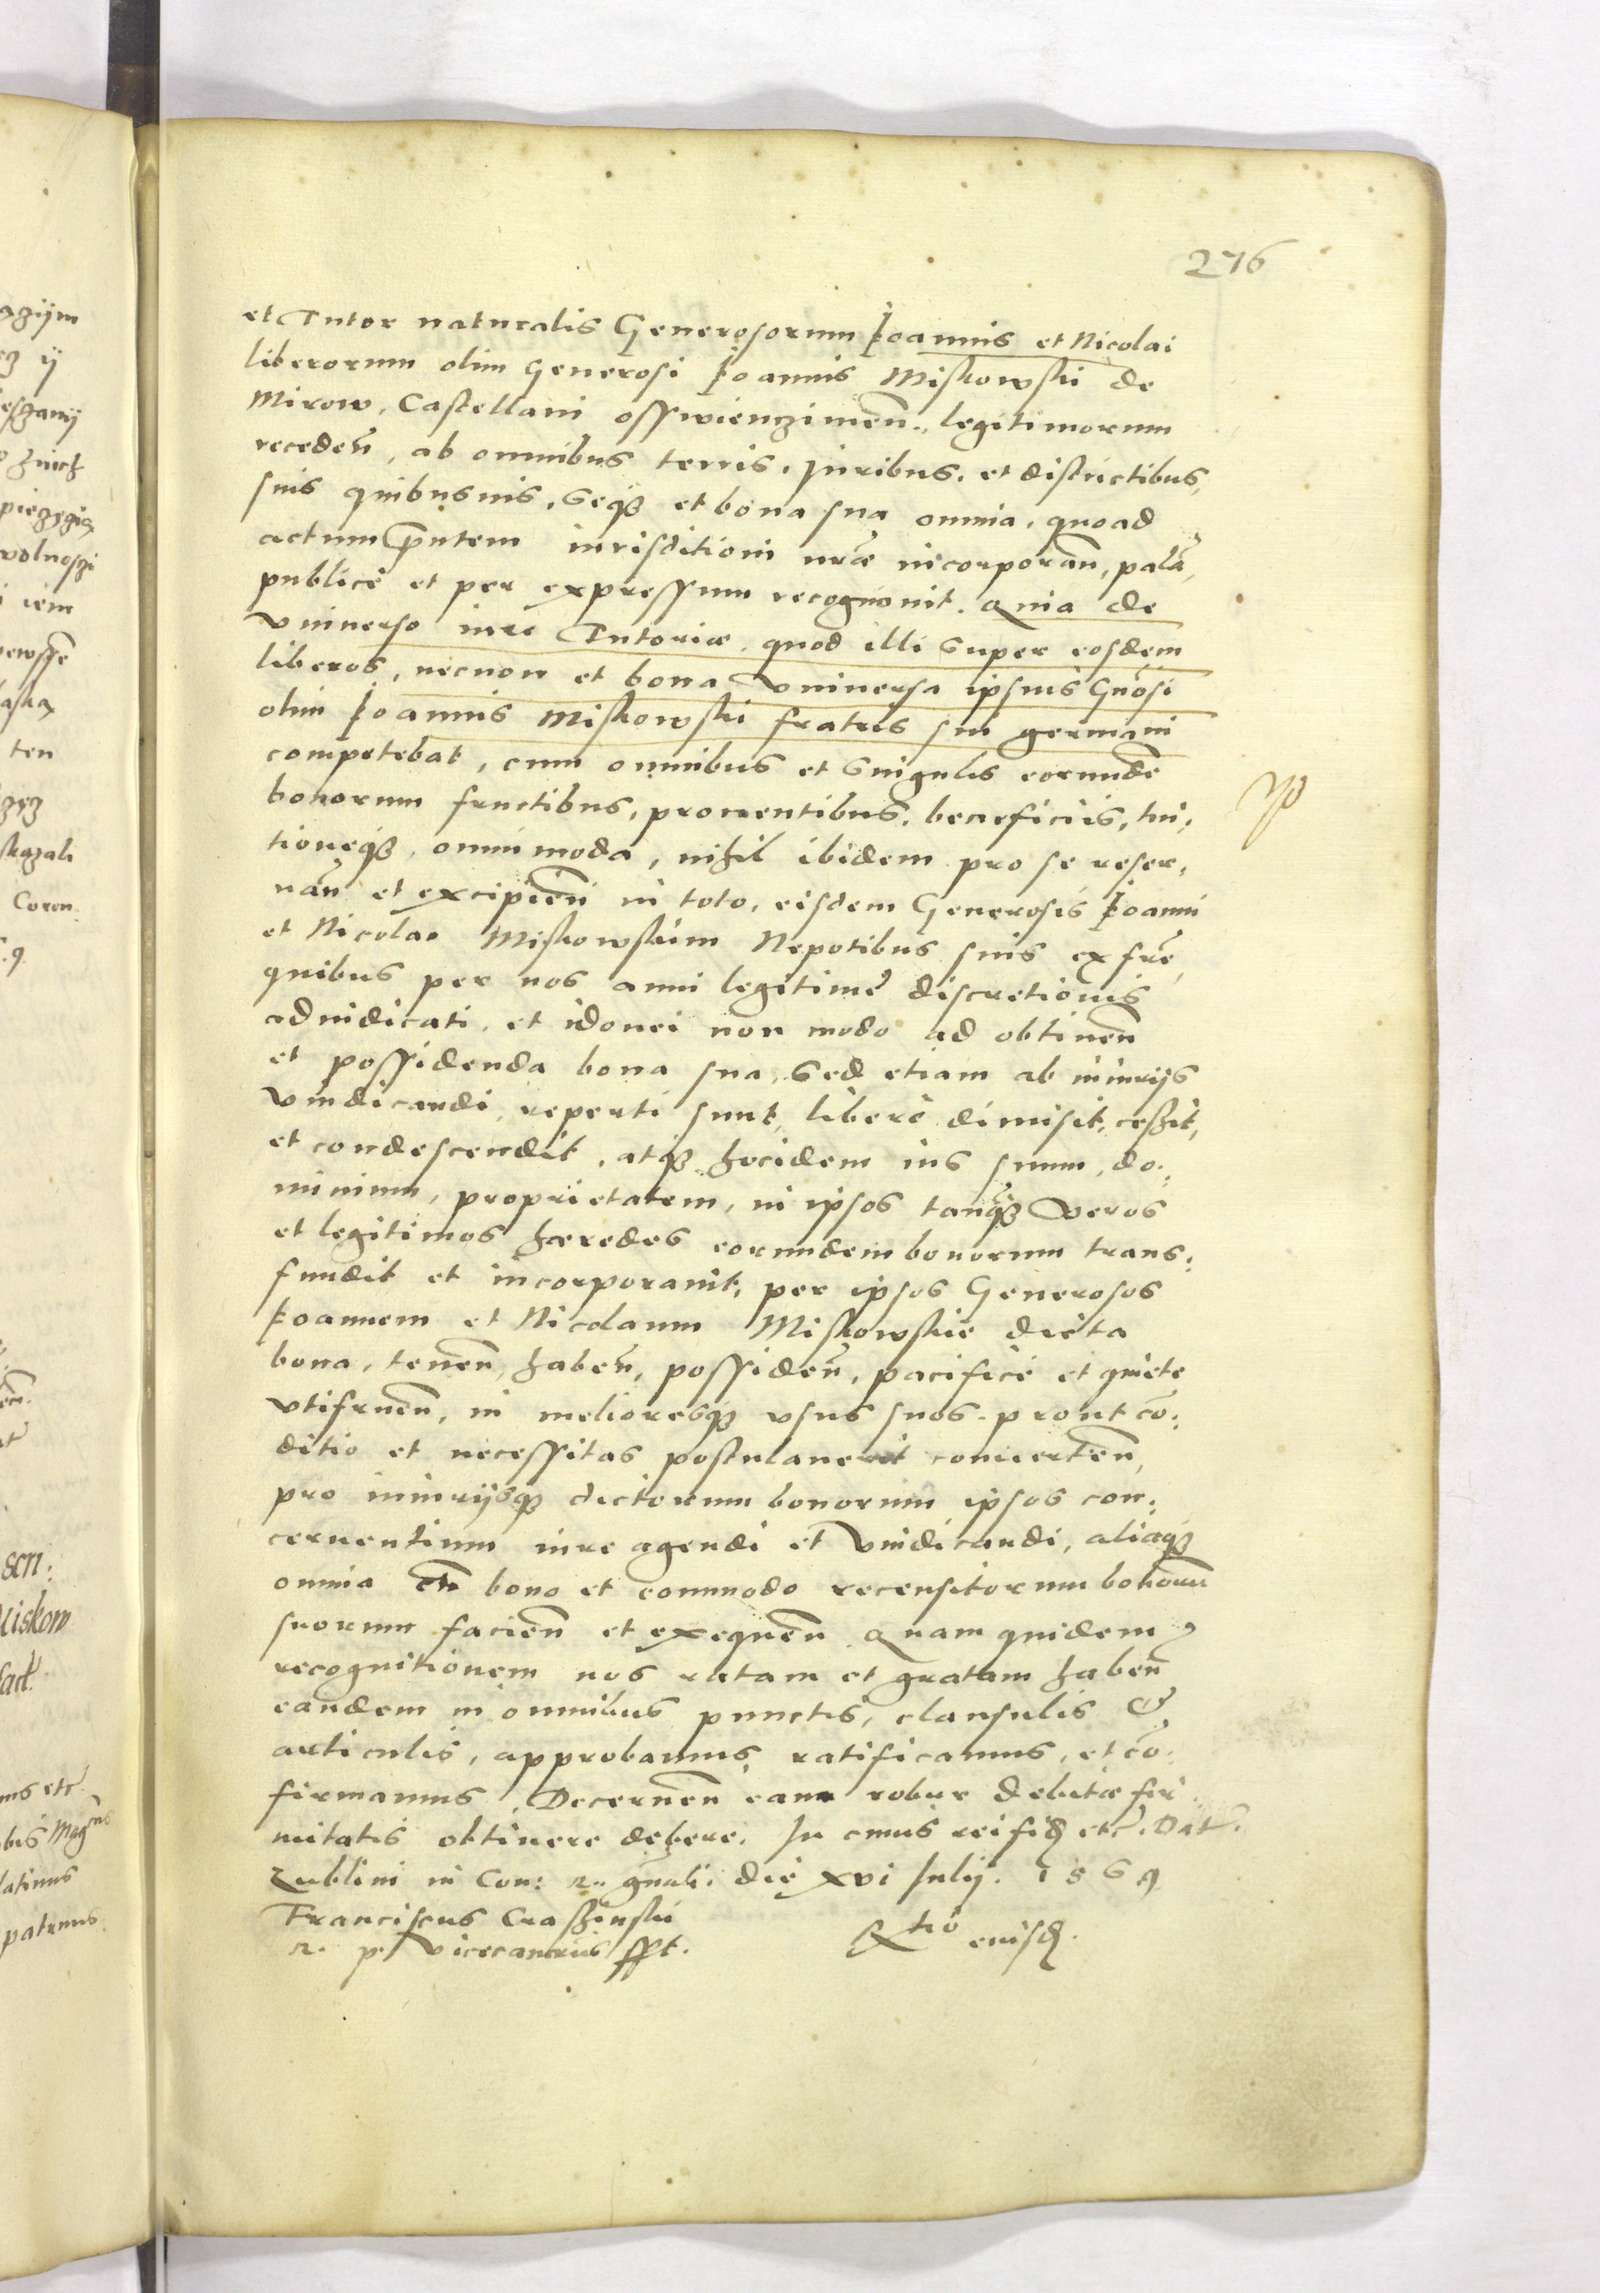 276
et Tutor naturalis Generosorum Joannis et Nicolai
liberorum olim Generosi Joannis Miskowski de
Mirow, Castellani osswienczimen̄., legitimorum
receden̄, ab omnibus terris, iuribus, et districtibus,
suis quibusuis, seqȝ et bona sua omnia, quoad
actum p̄ntem iurisditioni nr̄æ incorporan̄, palā,
publicè et per expressum recognouit. Quia de
vniuerso iure Tutoriæ, quod illi super eosdem
liberos, necnon et bona vniuersa ipsius Gn̄osi
olim Joannis Miskowski fratris sui germani
competebat, cum omnibus et singulis eorundē
bonorum fructibus, prouentibus, beneficiis, tui,
tioneqȝ, omnimoda, nihil ibidem pro se reser,
uan̄ et excipien̄ in toto, eisdem Generosis Joanni
et Nicolao Miskowskim Nepotibus suis ex frē,
quibus per nos anni legitimè discretionis
adiudicati, et idonei non modo ad obtinen̄
et possidenda bona sua, sed etiam ab iniurijs
vindicandi, reperti sunt, liberè dimisit, cessit,
et condescendit, atqȝ hocidem ius suum, do,
minium, proprietatem, in ipsos tanqȝ veros
et legitimos hæredes eorundem bonorum trans,
fundit et incorporauit, per ipsos Generosos
Joannem et Nicolaum Miskowskie dicta
bona, tenen̄, haben̄, possiden̄, pacificè et quiete
vtifruen̄, in melioresqȝ vsus suos, prout cō,
ditio et necessitas postulauerit conuerten̄,
pro iniurijsqȝ dictorum bonorum ipsos con,
cernentium iure agendi et vindicandi, aliaqȝ
omnia bono et commodo recensitorum bonorum
suorum facien̄ et exequen̄ Quam quidem
recognitionem nos ratam et gratam haben̄
eandem in omnibus punctis, clausulis &
articulis, approbamus, ratificamus, et cō,
firmamus, Decernen̄ eam robur debitæ fir
mitatis obtinere debere. In cuius rei fid etc. Dat.
Lublini in Con: R. gn̄ali. die xvi Julij. 1569
Franciscus Crassinski
R. P. Vicecancrius sst.
R̄tio eiusd.